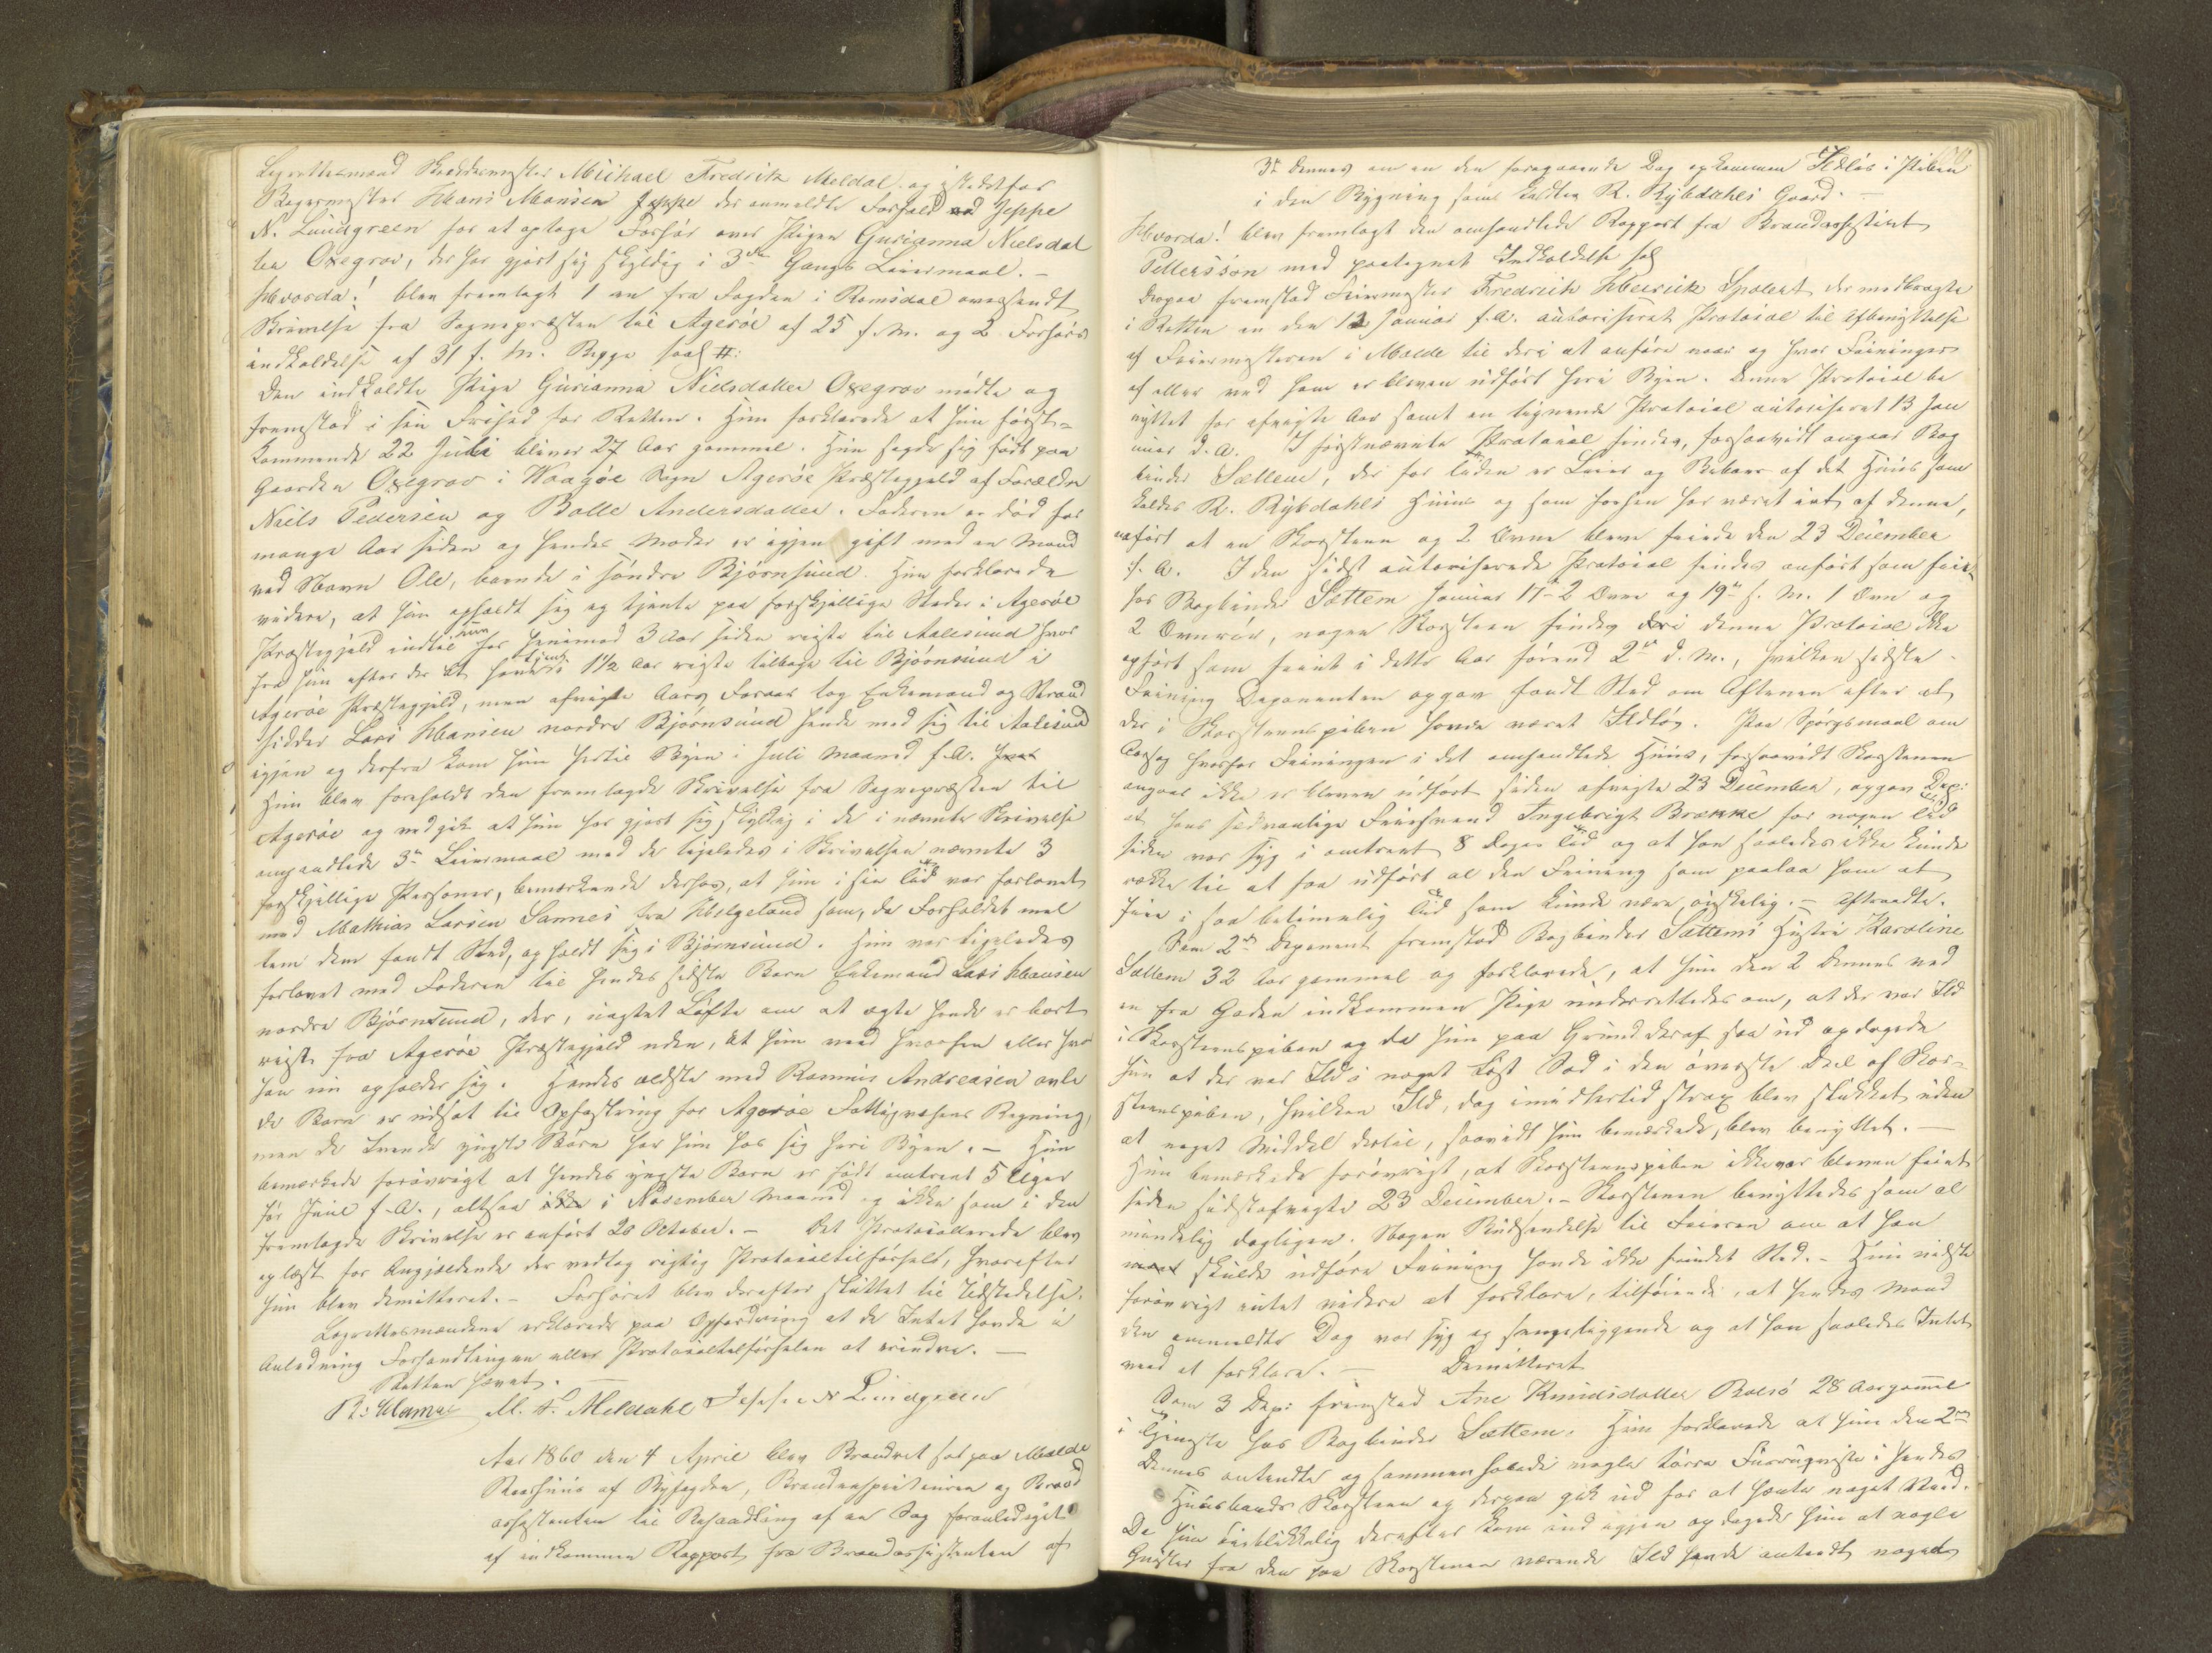 Lagrettesmand Skræddermester Michael Fredrik Meldal og istedetfor
Bagermester Hans Monsen Jeppe der anmeldte Forfald ved Jeppe
N. Lundgreen for at optage Forhør over Pigen Gurianna Nielsdat
ter Oxegrov, der har gjort sig skyldig i 3die Gangs Leiermaal. –
Hvorda! blev fremlagt 1 en fra Fogden i Romsdal oversendt
Skrivelse fra Sognepræsten til Agerøe af 25 f. M. og 2 Forhørs
indkaldelse af 31 f. M. Begge saal #:
Den indkaldte Pige Gurianna Nielsdatter Oxegrov mødte og
fremstod i sin Frihed for Retten. Hun forklarede at hun først-
kommende 22 Juli bliver 27 Aar gammel. Hun sagde sig født paa
Gaarden Oxegrov i Waagøe Sogn Agerøe Præstegjeld af Forældre
Niels Pedersen og Bolle Andersdatter. Faderen er død for
mange Aar siden og hendes Moder er igjen gift med en Mand
ved Navn Ole, boende i søndre Bjørnsund. Hun forklarede
videre, at hun opholdt sig og tjente paa forskjellige Steder i Agerøe
Præstegjeld indtil hun for henimod 3 Aar siden reiste til Aalesund hvor
fra hun efter der at have tjent i 1½ Aar reiste tilbage til Bjørnsund i
Agerøe Præstegjeld, men afvigte Aars Foraar tog Enkemand og Strand
sidder Lars Hansen nordre Bjørnsund hende med sig til Aalesund
igjen og derfra kom hun hertil Byen i Juli Maaned f. A.
Hun blev foreholdt den fremlagde Skrivelse fra Sognepræsten til
Agerøe og vedgik at hun har gjort sig skyldig i de i nævnte Skrivelse
omhandlede 3de Leiermaal med de ligeledes i Skrivelsen nævnte 3
forskjellige Personer, bemærkende derhos, at hun i sin Tid var forlovet
med Mathias Larsen Sannes fra Helgeland som, da Forholdet mel
lem dem fandt Sted, opholdt sig i Bjørnsund. Hun var ligeledes
forlovet med Faderen til hendes sidste Barn Enkemand Lars Hansen
nordre Bjørnsund, der, uagtet Løfte om at ægte hende er bort
reist fra Agerøe Præstegjeld uden, at hun veed hvorhen eller hvor
han nu opholder sig. Hendes ældste med Rasmus Andreasen avle
de Barn er udsat til Opfostring for Agerøe Fattigvæsens Regning,
men de tvende yngste Børn har hun hos sig heri Byen. – Hun
bemærkede forøvrigt at hendes yngste Barn er født omtrent 5 Uger
før Juul f. A., altsaa i November Maaned og ikke som i den
fremlagde Skrivelse er anført 20 October. – Det Protocollerede blev
oplæst for Angjældende der vedtog rigtig Protocoltilførsel, hvorefter
hun blev demitteret. – Forhøret blev derefter sluttet til Udstedelse.
Lagrettesmændene erklærede paa Opfordring at de Intet havde i
Anledning Forhandlingen eller Protocoltilførselen at erindre. –
Retten hævet. –
M. F. Meldahl Jeppe N Lundgreen
Aar 1860 den 4 April blev Brandret sat paa Molde
Raadhuus af Byfogden, Brandinspecteuren og Brand
assistenten til Behandling af en Sag foranlediget
af indkommen Rapport fra Brandassistenten af
3de dennes om en den foregaaende Dag opkommen Ildløs i Piben
i den Bygning som kaldes R. Rybdahls Gaard. –
Hvorda! blev fremlagt den omhandlede Rapport fra Brandassistent
Pettersson med paategnet Indkaldelse saal
Derpaa fremstod Feiermester Fredrich Henrick Spolert der medbragte
i Retten en den 12 Januar f. A. autoriseret Protocol til Afbenyttelse
af Feiermesteren i Molde til deri at anføre naar og hvor Feininger
af eller ved ham er bleven udført heri Byen. Denne Protocol be
nyttet for afvigte Aar samt en lignende Protocol autoriseret 13 Jan
uar d. A. I førstnævnte Protocol findes, forsaavidt angaar Bog
binder Sættem, der for Tiden er Leier og Beboer af det Huus som
kaldes R. Rybdahls Huus og som forhen har været eiet af denne,
anført at en Skorsteen og 2 Ovne bleve feiede den 23 December
f. A. I den sidst autoriserede Protocol findes anført som feiet
hos Bogbinder Sættem Januar 17– 2 Ovne og 19de f. M. 1 Ovn og
2 Ovnrør, nogen Skorsteen findes i denne Protocol ikke
opført som feiet i dette Aar førend 2den d. M., hvilken sidste
Feining Deponenten opgav fandt Sted om Aftenen efter at
der i Skorsteenspiben havde været Ildløs. Paa Spørgsmaal om
Aarsag hvorfor Feiningen i det omhandlede Huus, forsaavidt Skorstenen
angaar ikke er bleven udført siden afvigte 23 December, opgav Dep:
at hans sædvanlige Feiersvend Ingebrigt Brække for nogen Tid
siden var syg i omtrent 8 Dages Tid og at han saaledes ikke kunde
række til at faa udført al den Feining som paalaa ham at
feie i saa betimelig Tid som kunde være ønskelig. – Aftraadte.
Som 2den Deponent fremstod Bogbinder Sættems Hustru Karoline
Sættem 32 Aar gammel og forklarede, at hun den 2 dennes ved
en fra Gaden indkommen Pige underrettedes om, at der var Ild
i Skorsteenspiben og da hun paa Grund deraf saa ud opdagede
hun at der var Ild i noget løst Sod i den øverste Deel af Skor-
steenspiben, hvilken Ild, dog imidlertid strax blev slukket uden
at noget Middel dertil, saavidt hun bemærkede, blev benyttet. –
Hun bemærkede forøvrigt, at Skorsteenspiben ikke var bleven feiet
siden sidstafvigte 23 December. – Skorstenen benyttedes som al
mindelig dagligen. Nogen Budsendelse til Feieren om at han
skulde udføre Feining havde ikke fundet Sted. – Hun vidste
forøvrigt intet videre at forklare, tilføiende, at hendes Mand
den ommeldte Dag var syg og sengeliggende og at han saaledes Intet
veed at forklare. – Demitteret
Som 3 Dep: fremstod Ane Knudsdatter Bolsø 28 Aar gammel
i Tjeneste hos Bogbinder Sættem. Hun forklarede at hun den 2den
dennes antændte og sammen havde nogle tørre Furruqviste i hendes
Huusbonds Skorsteen og derpaa gik ud for at hente noget Ved.
Da hun øieblikkelig derefter kom ind igjen opdagede hun at nogle
Gnister fra den paa Skorstenen værende Ild havde antændt noget